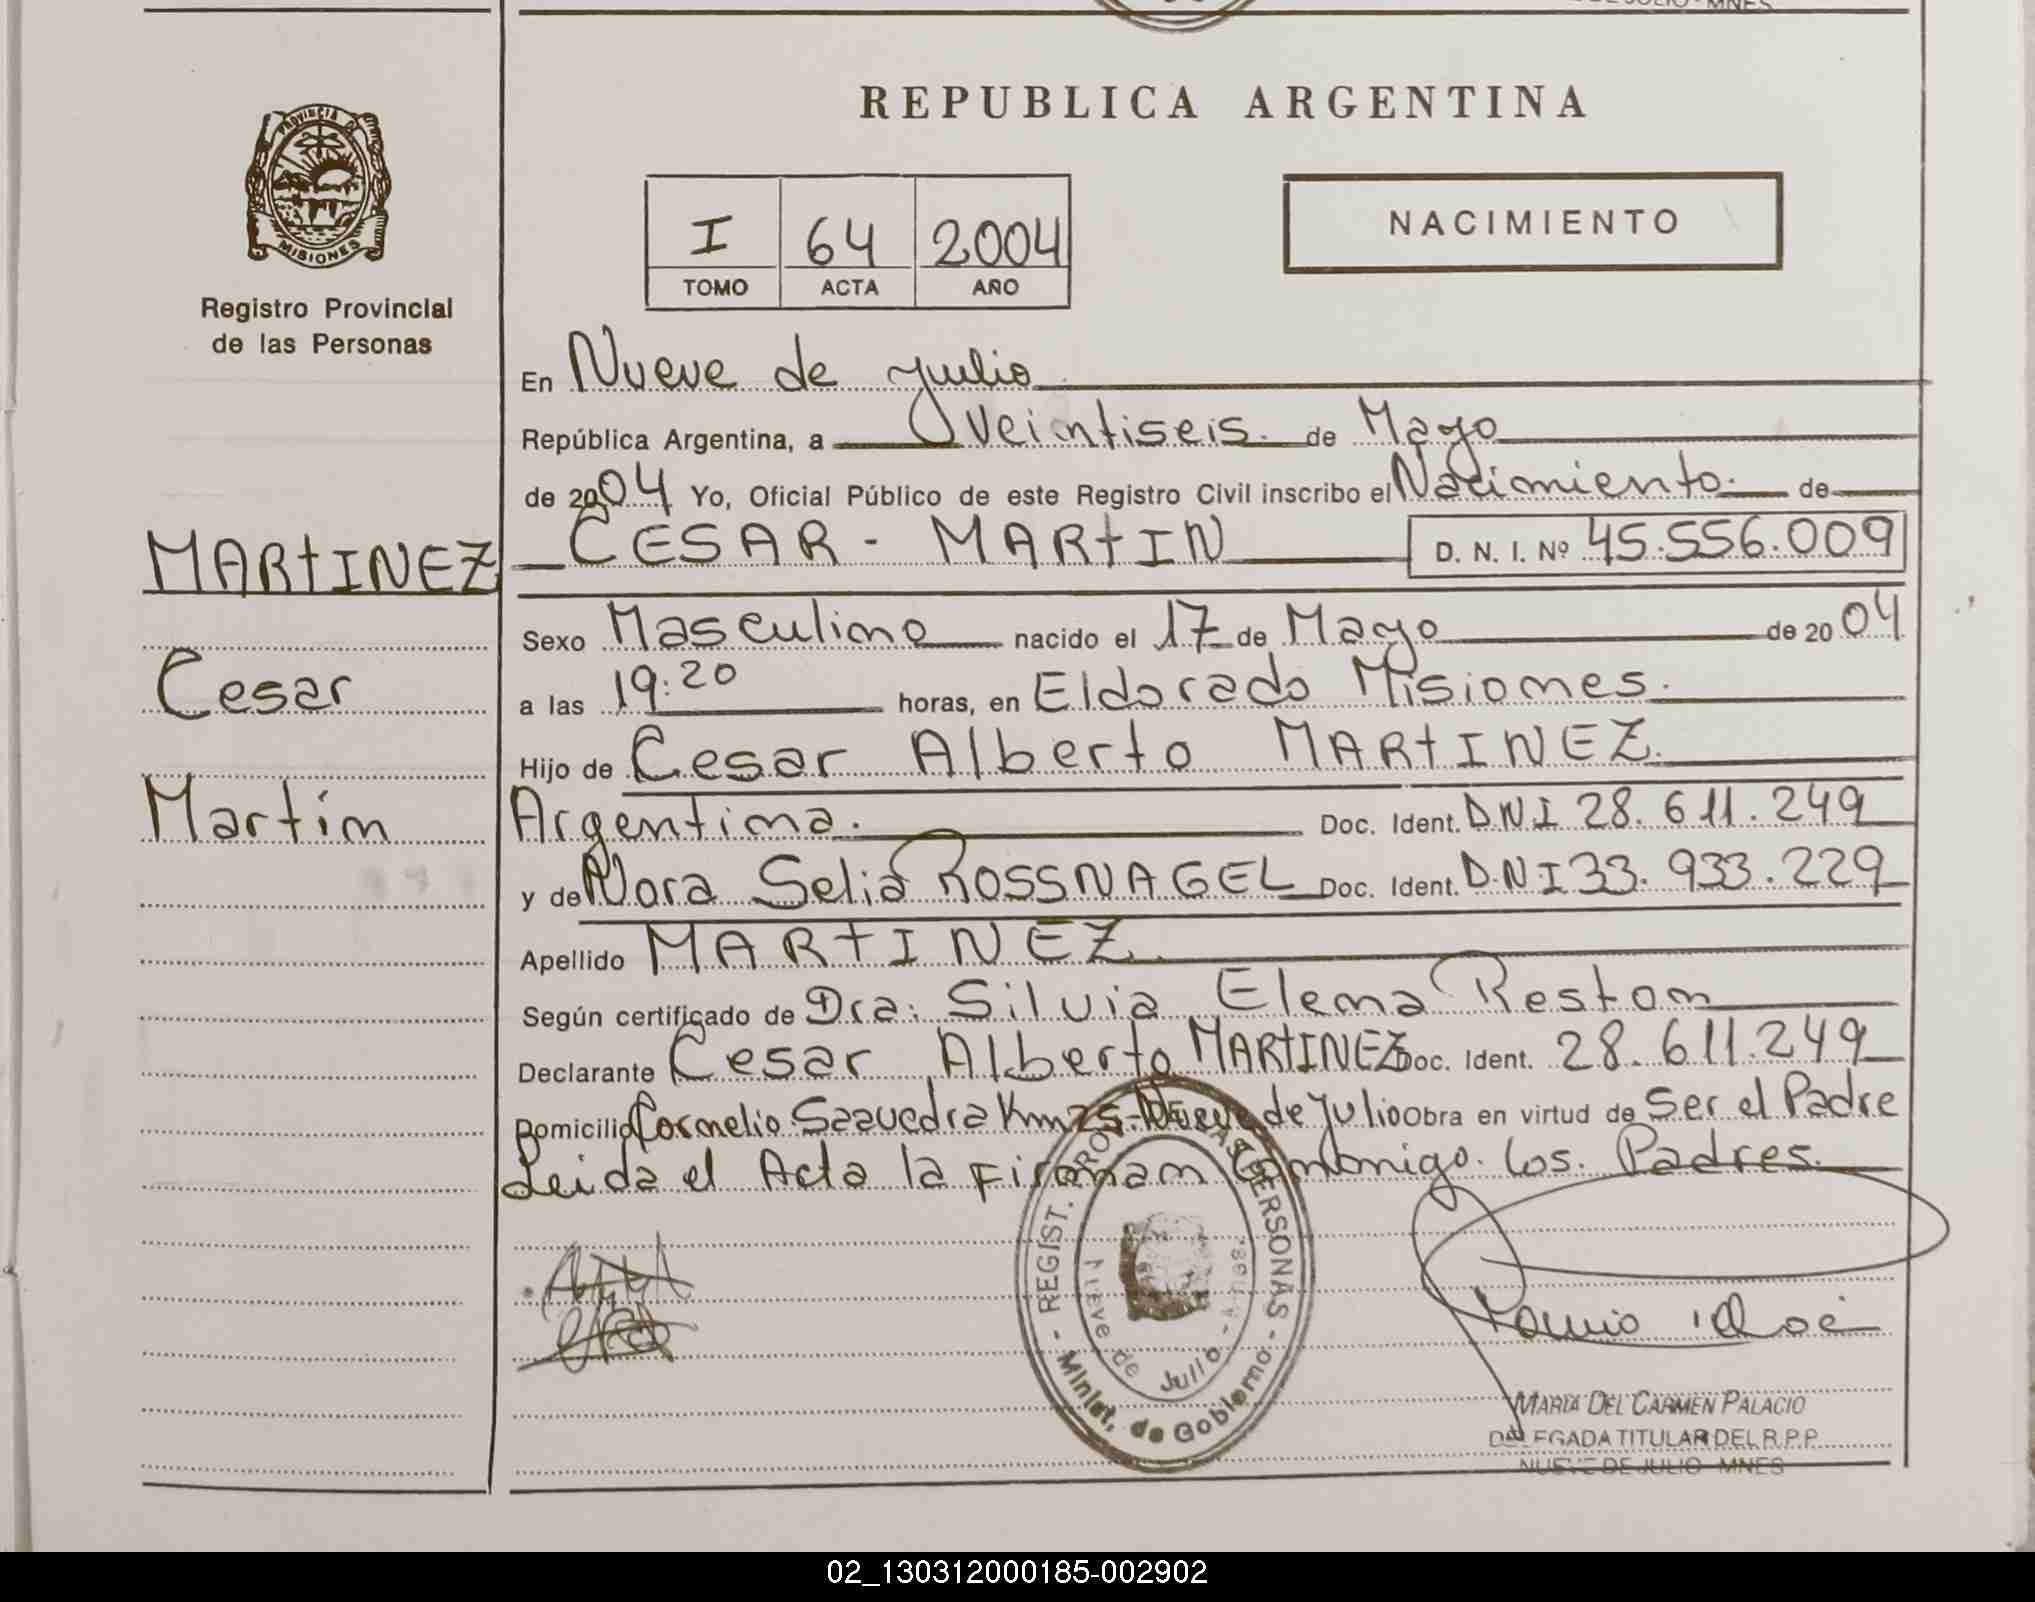 REPUBLICA ARGENTINA
PROVINCIA DE
MISIONES
Registro Provincial
de las Personas
I 64 2004
TOMO ACTA AÑO
NACIMIENTO
En Nueve de Julio
República Argentina, a Veintiseis de Mayo
de 2004 Yo, Oficial Público de este Registro Civil inscribo el Nacimiento de
MARTINEZ
Cesar
Martín
CESAR - MARTIN D. N. I. Nº 45.556.009
Sexo Masculino nacido el 17 de Mayo de 2004
a las 19:20 horas, en Eldorado Misiones.
Hijo de Cesar Alberto MARTINEZ.
Argentina. Doc. Ident. DNI 28.611.249
y de Nora Selia ROSSNAGEL Doc. Ident. DNI 33.933.229
Apellido MARTINEZ.
Según certificado de Dra: Silvia Elena Reston
Declarante Cesar Alberto MARTINEZ Doc. Ident. 28.611.249
Domicilio Cornelio Saavedra Km 25-Nueve de Julio Obra en virtud de Ser el Padre
Leida el Acta la Firman Conmnigo. los. Padres.
- REGIST. PROV. DE LAS PERSONAS -
Nueve de Julio
Minist. de Gobierno
MARIA DEL CARMEN PALACIO
DELEGADA TITULAR DEL R.P.P.
NUEVE DE JULIO - MNES
02_130312000185-002902